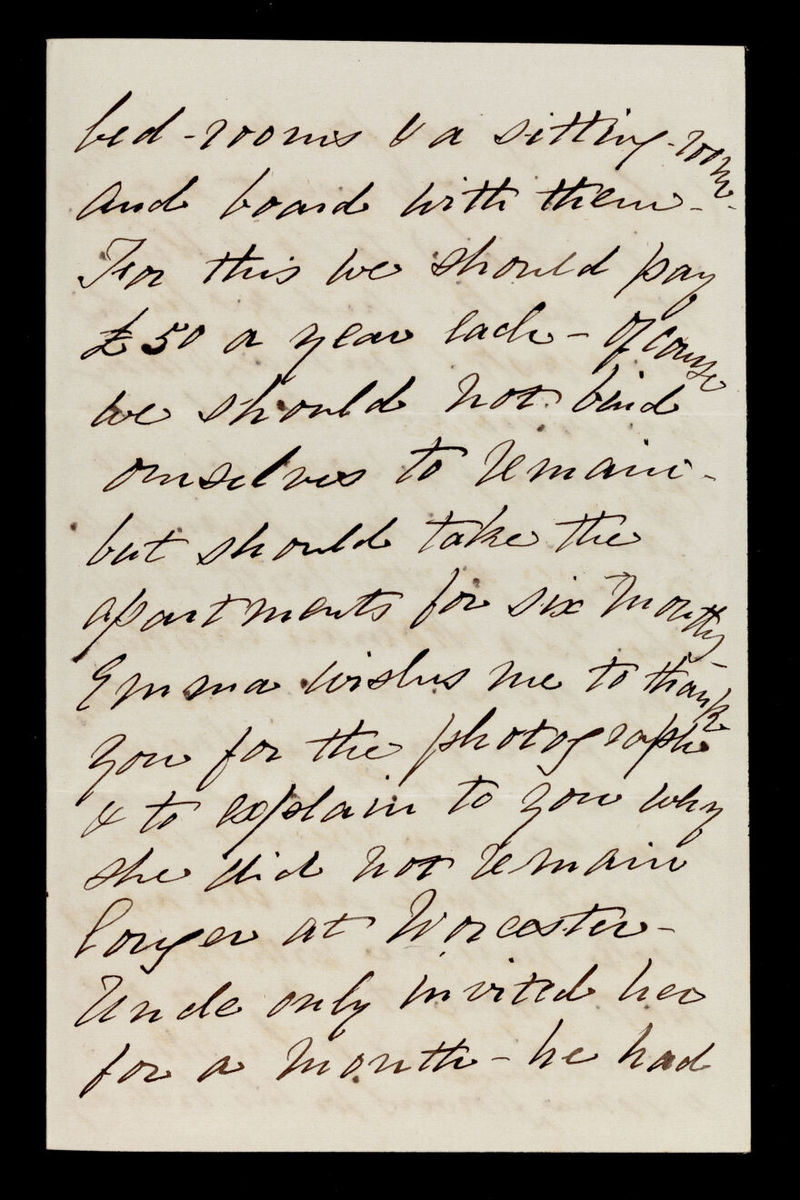 bed-rooms & a sitting-room
and board with them-
For this we should pay
£50 a year each - Of course
we should not bind
ourselves to remain-
but should take the
apartments for six months-
Emma wishes me to thank
you for the photograph
& to explain to you why
she did not remain
longer at Worcester-
Uncle only invited her
for a month - he had